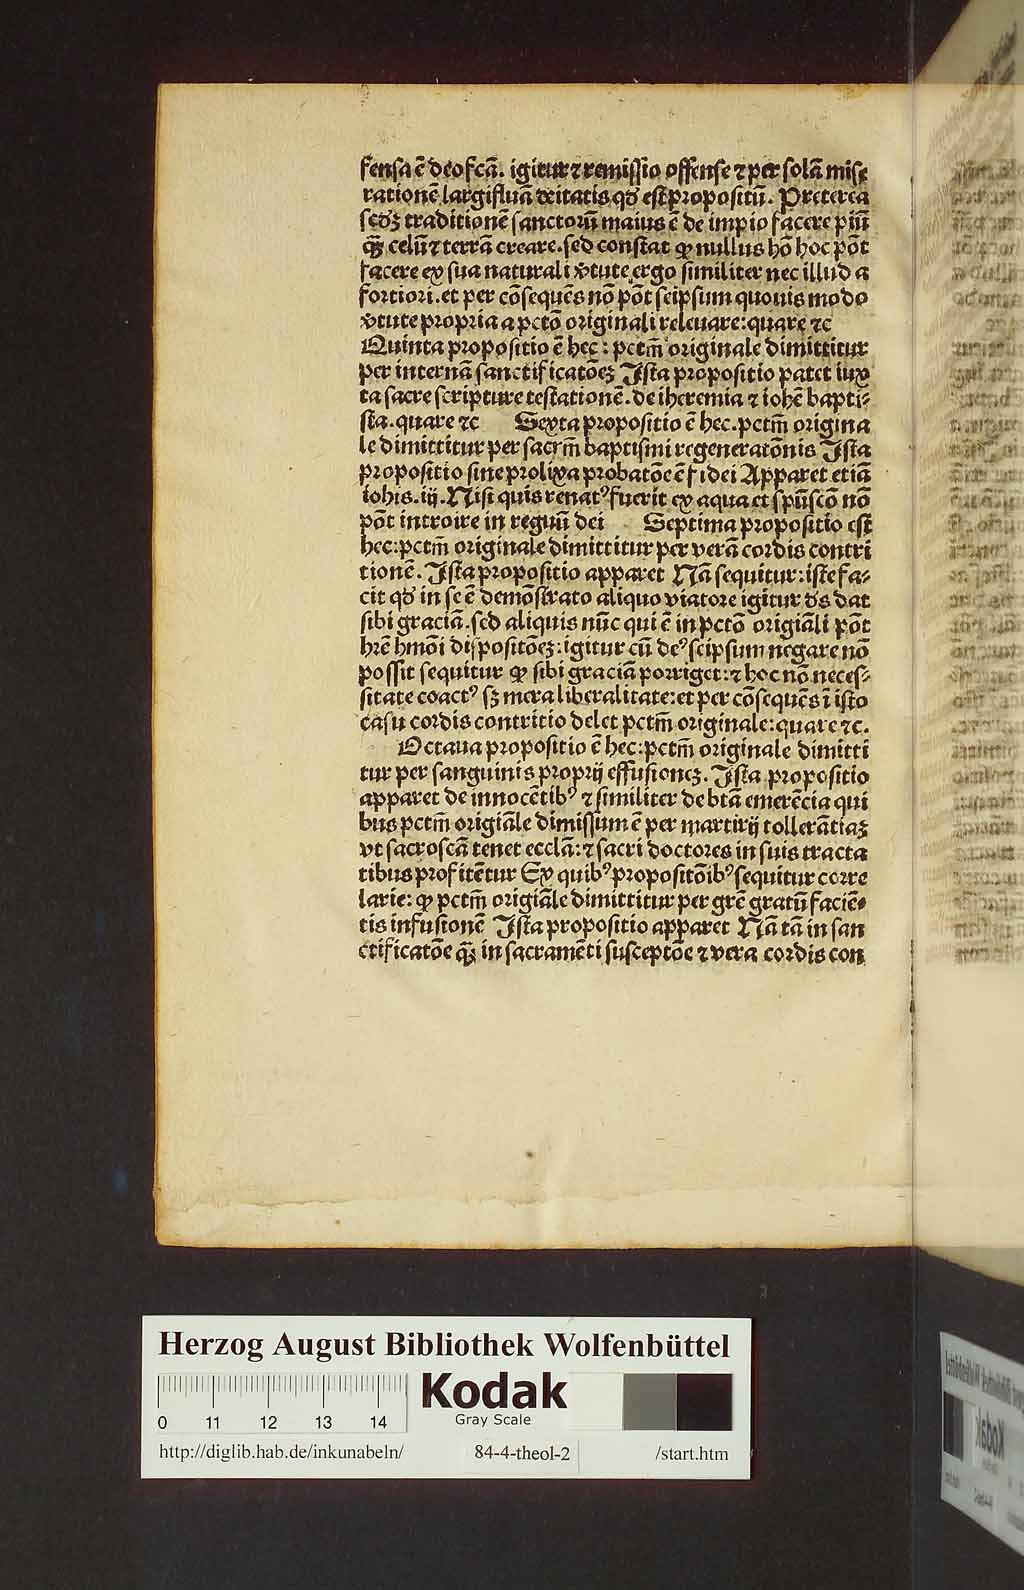 fensa ē deofcā. igitur ⁊ remissio offense ⁊ per solā mise
rationē largifluā deitatis qd̄ est propositū. Preterea
sedꝫ traditionē sanctorū maius ē de impio facere piū
qꝫ̄ celū ⁊ terrā creare. sed constat ꝙ nullus hō hoc pōt
facere ex sua naturali v̄tute ergo similiter nec illud a
fortiori. et per cōsequēs nō pōt seipsum quouis modo
v̄tute propria a pctō originali releuare: quare ⁊c
Quinta propositio ē hec: pctm̄ originale dimittitur
per internā sanctificatōeꝫ Ista propositio patet iux
ta sacre scripture testationē. de iheremia ⁊ iohē bapti⸗
sta. quare ⁊c Sexta propositio ē hec. pctm̄ origina
le dimittitur per sacrm̄ baptismi regeneratōnis Ista
propositio sine prolixa probatōe ē fidei Apparet etiā
iohis. iij. Nisi quis renatꝰ fuerit ex aqua et spūscō nō
pōt introire in regnū dei Septima propositio est
hec: pctm̄ originale dimittitur per verā cordis contri
tionē. Ista propositio apparet Nā sequitur: iste fa⸗
cit qd̄ in se ē demōstrato aliquo viatore igitur ds̄ dat
sibi graciā. sed aliquis nūc qui ē in pctō origiāli pōt
hrē hmōi dispositōeꝫ: igitur cū deꝰ seipsum negare nō
possit sequitur ꝙ sibi graciā porriget: ⁊ hoc nō neces⸗
sitate coactꝰ sꝫ mera liberalitate: et per cōsequēs ī isto
casu cordis contritio delet pctm̄ originale: quare ⁊c.
Octaua propositio ē hec: pctm̄ originale dimitti
tur per sanguinis proprij effusioneꝫ. Ista propositio
apparet de innocētibꝰ ⁊ similiter de btā emerēcia qui
bus pctm̄ origiāle dimissum ē per martirij tollerātiaꝫ
vt sacroscā tenet ecclā: ⁊ sacri doctores in suis tracta
tibus profitētur Ex quibꝰ propositōibꝰ sequitur corre
larie: ꝙ pctm̄ origiāle dimittitur per grē gratū faciē⸗
tis infusionē Ista propositio apparet Nā tā in san
ctificatōe qꝫ̄ in sacramēti susceptōe ⁊ vera cordis con
Herzog August Bibliothek Wolfenbüttel
Kodak
Gray Scale
0 11 12 13 14
http://diglib.hab.de/inkunabeln/ 84-4-theol-2 /start.htm